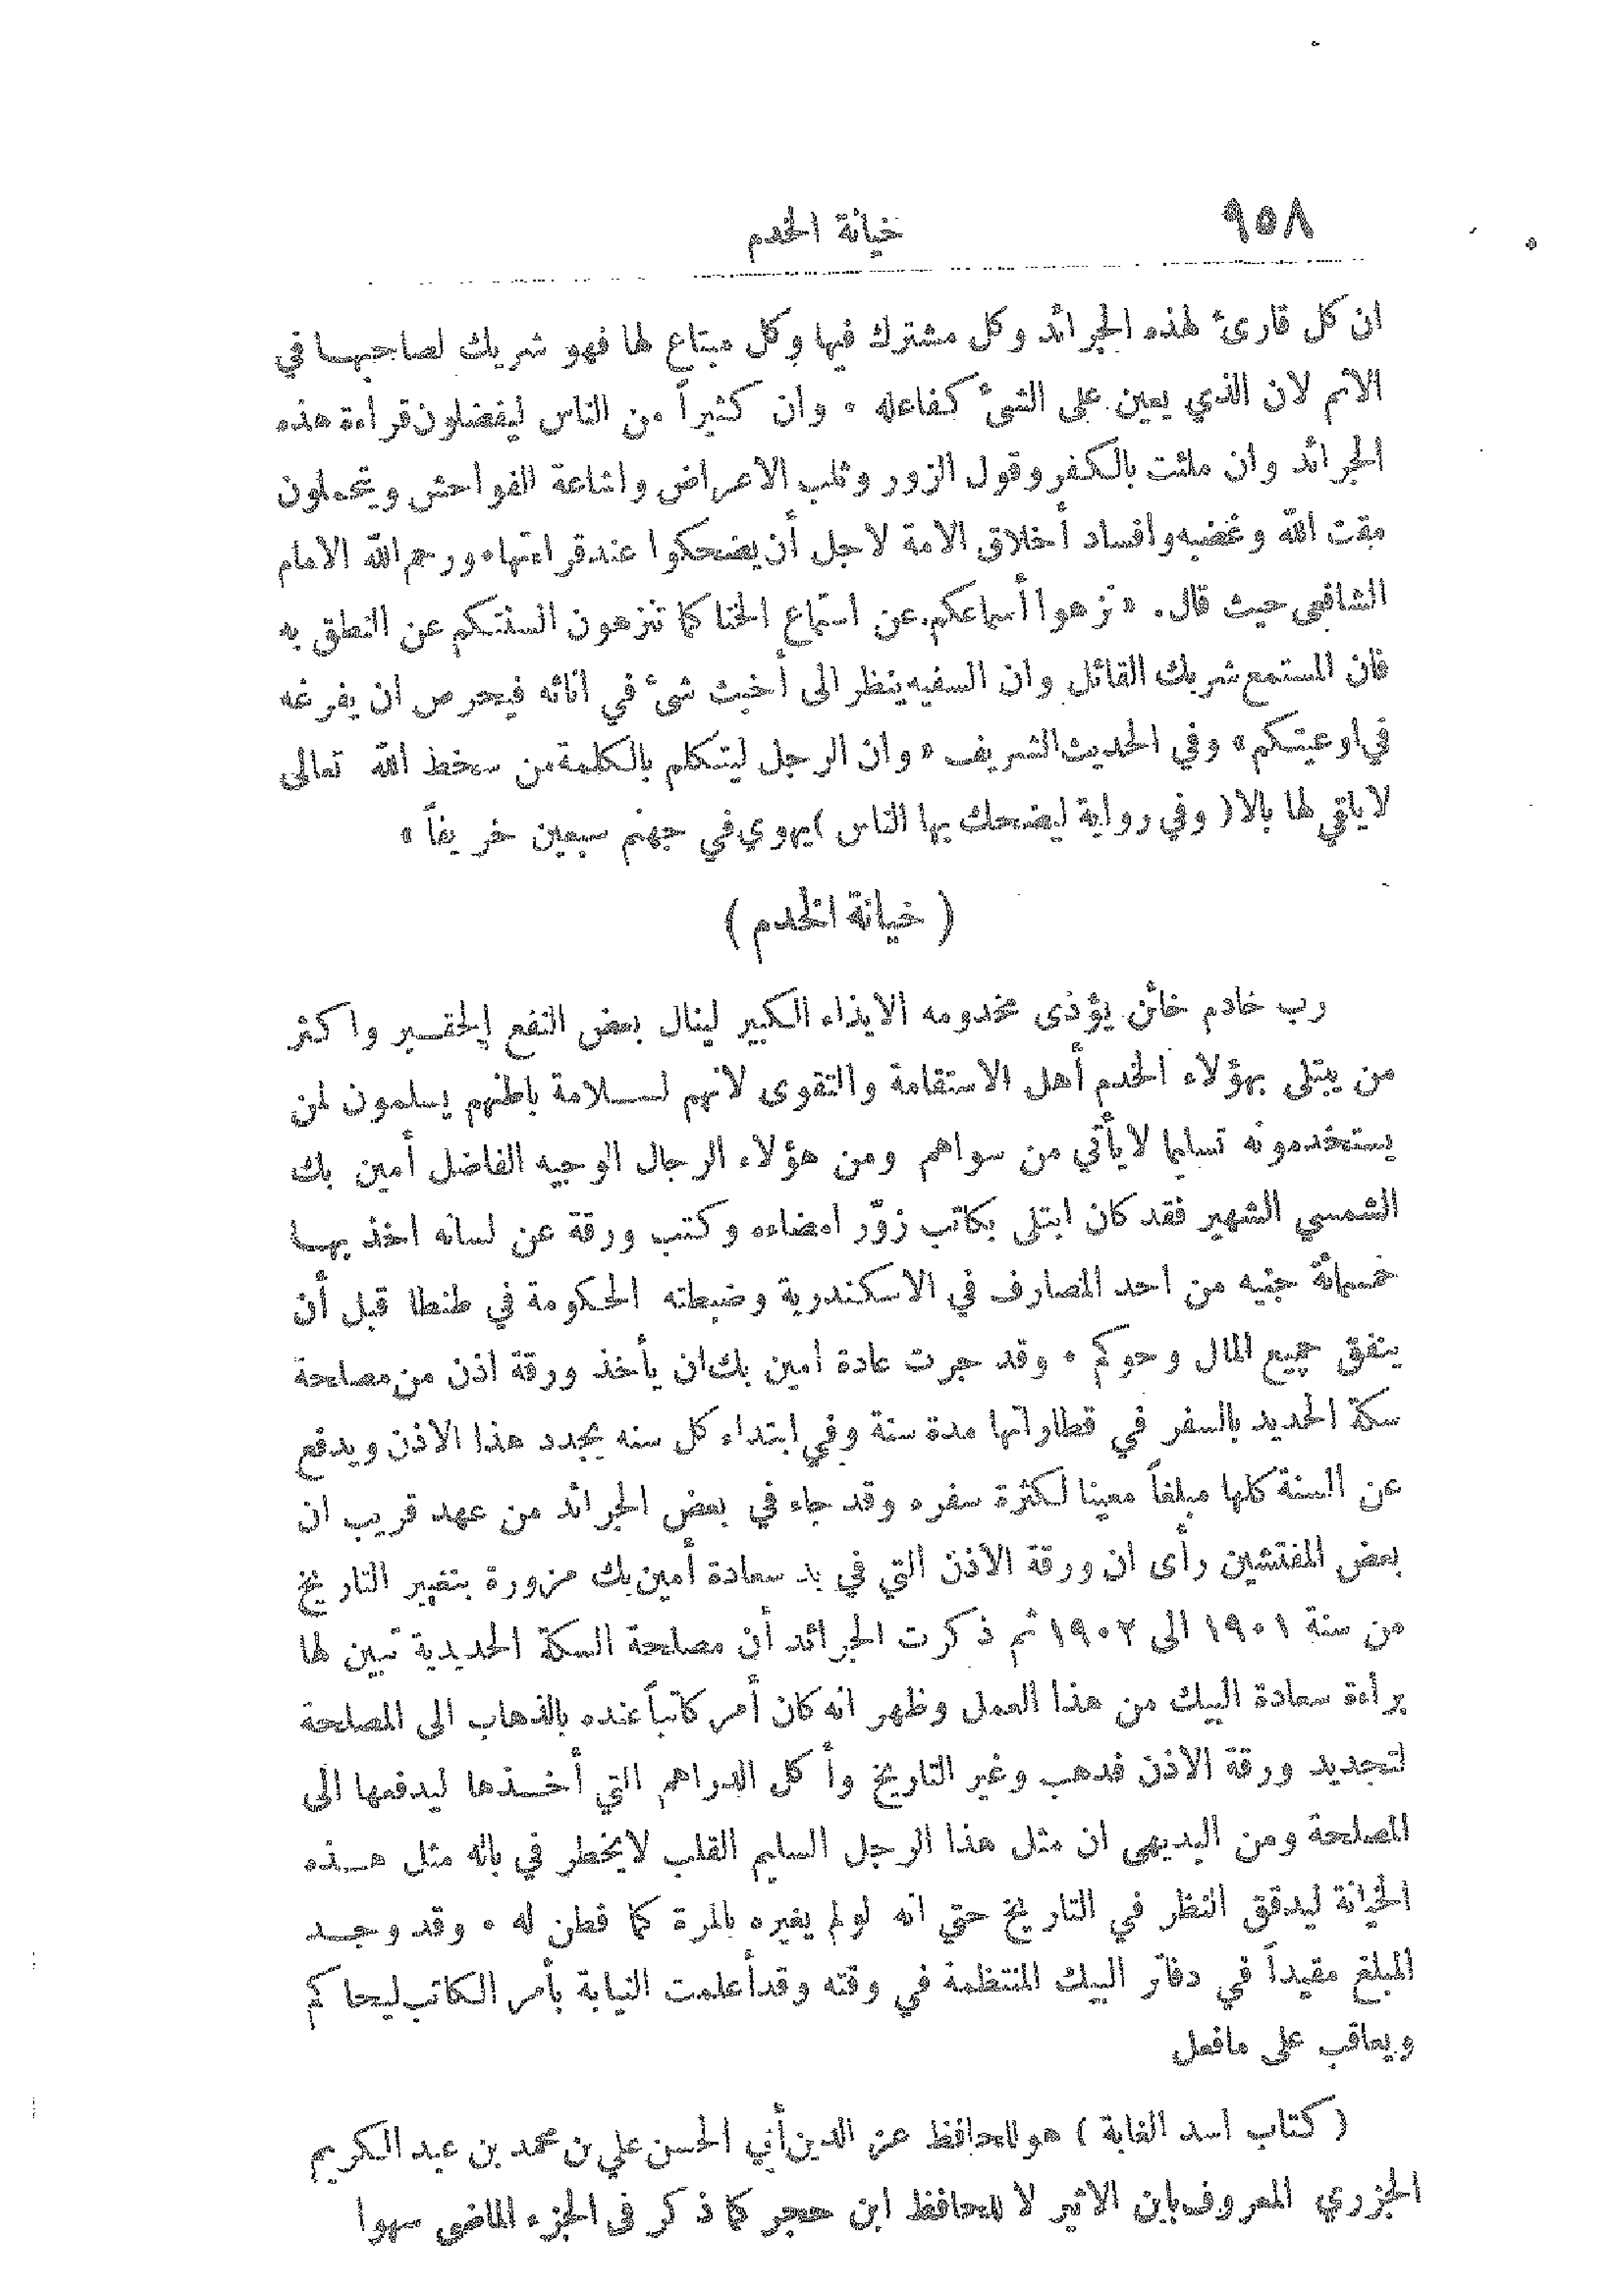 ٩٥٨
خيانة الخدم
ان كل قارئ لهذه الجرائد وكل مشترك فيها وكل مبتاع لها فهو شريك لصاحبها في
الاثم لان الذي يعين على الشئ كفاعله ٠ وان كثيراً من الناس ليفضلون قراءة هذه
الجرائد وان ملئت بالكفر وقول الزور وثلب الاعراض واشاعة الفواحش ويتحملون
مقت الله وغضبه وافساد أخلاق الامة لاجل أن يضحكوا عند قراءتها ٠ ورحم الله الامام
الشافعي حيث قال ٠ « نزهوا أسماعكم عن استماع الخنا كما تنزهون السنتكم عن النطق به
فان المستمع شريك القائل وان السفيه ينظر الى أخبث شئ في انائه فيحرص ان يفرغه
في اوعيتكم » وفي الحديث الشريف « وان الرجل ليتكلم بالكلمة من سخط الله تعالى
لا يلقي لها بالا ( وفي رواية ليضحك بها الناس ) يهوي في جهنم سبعين خريفاً »
( خيانة الخدم )
رب خادم خائن يؤذى مخدومه الايذاء الكبير لينال بعض النفع الحقير واكثر
من يبتلى بهؤلاء الخدم أهل الاستقامة والتقوى لانهم لسلامة باطنهم يسلمون لمن
يستخدمونه تسليما لا يأتي من سواهم ومن هؤلاء الرجال الوجيه الفاضل أمين بك
الشمسي الشهير فقد كان ابتلى بكاتب زوّر امضاءه وكتب ورقة عن لسانه اخذ بها
خمسمائة جنيه من احد المصارف في الاسكندرية وضبطته الحكومة في طنطا قبل أن
ينفق جميع المال وحوكم ٠ وقد جرت عادة امين بك ان يأخذ ورقة اذن من مصلحة
سكة الحديد بالسفر في قطاراتها مدة سنة وفي ابتداء كل سنه يجدد هذا الاذن ويدفع
عن السنة كلها مبلغاً معينا لكثرة سفره وقد جاء في بعض الجرائد من عهد قريب ان
بعض المفتشين رأى ان ورقة الاذن التي في يد سعادة أمين بك مزورة بتغيير التاريخ
من سنة ١٩٠١ الى ١٩٠٢ ثم ذكرت الجرائد أن مصلحة السكة الحديدية تبين لها
براءة سعادة البيك من هذا العمل وظهر انه كان أمر كاتباً عنده بالذهاب الى المصلحة
لتجديد ورقة الاذن فذهب وغير التاريخ وأكل الدراهم التي أخذها ليدفعها الى
المصلحة ومن البديهي ان مثل هذا الرجل السليم القلب لا يخطر في باله مثل هذه
الخيانة ليدقق النظر في التاريخ حتي انه لو لم يغيره بالمرة لما فطن له ٠ وقد وجد
المبلغ مقيداً في دفاتر البيك المنتظمة في وقته وقد أعلمت النيابة بأمر الكاتب ليحاكم
ويعاقب على ما فعل
( كتاب اسد الغابة ) هو للحافظ عز الدين أبي الحسن علي بن محمد بن عبد الكريم
الجزري المعروف بابن الاثير لا للحافظ ابن حجر كما ذكر في الجزء الماضي سهوا